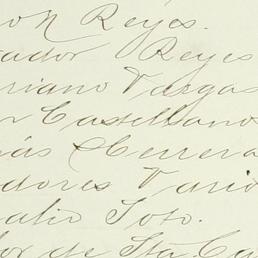 on Reyes.
ador Reyes
riano Vargas
n Castellano
más Herrera
adores Vario
alio Soto.
or de Sta. Ca